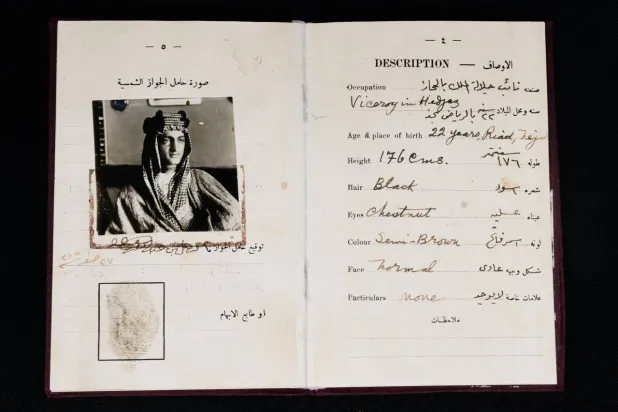 — ٥ —
صورة حامل الجواز الشمسية
توقيع حامل الجواز
او طابع الابهام
— ٤ —
DESCRIPTION — الاوصاف
Occupation نائب جلالة الملك بالحجاز صنعته
Viceroy in Hedjaz
٢٢ سنة بالرياض نجد سنه ومحل الميلاد
Age & place of birth 22 years, Riad, Nejd
Height 176 cms. ١٧٦ سنتمتر طوله
Hair Black اسود شعره
Eyes Chestnut عسلية عيناه
Colour Semi-Brown لونه
Face Normal عادي شكل وجهه
Particulars none لا يوجد علامات خاصة
ملاحظات